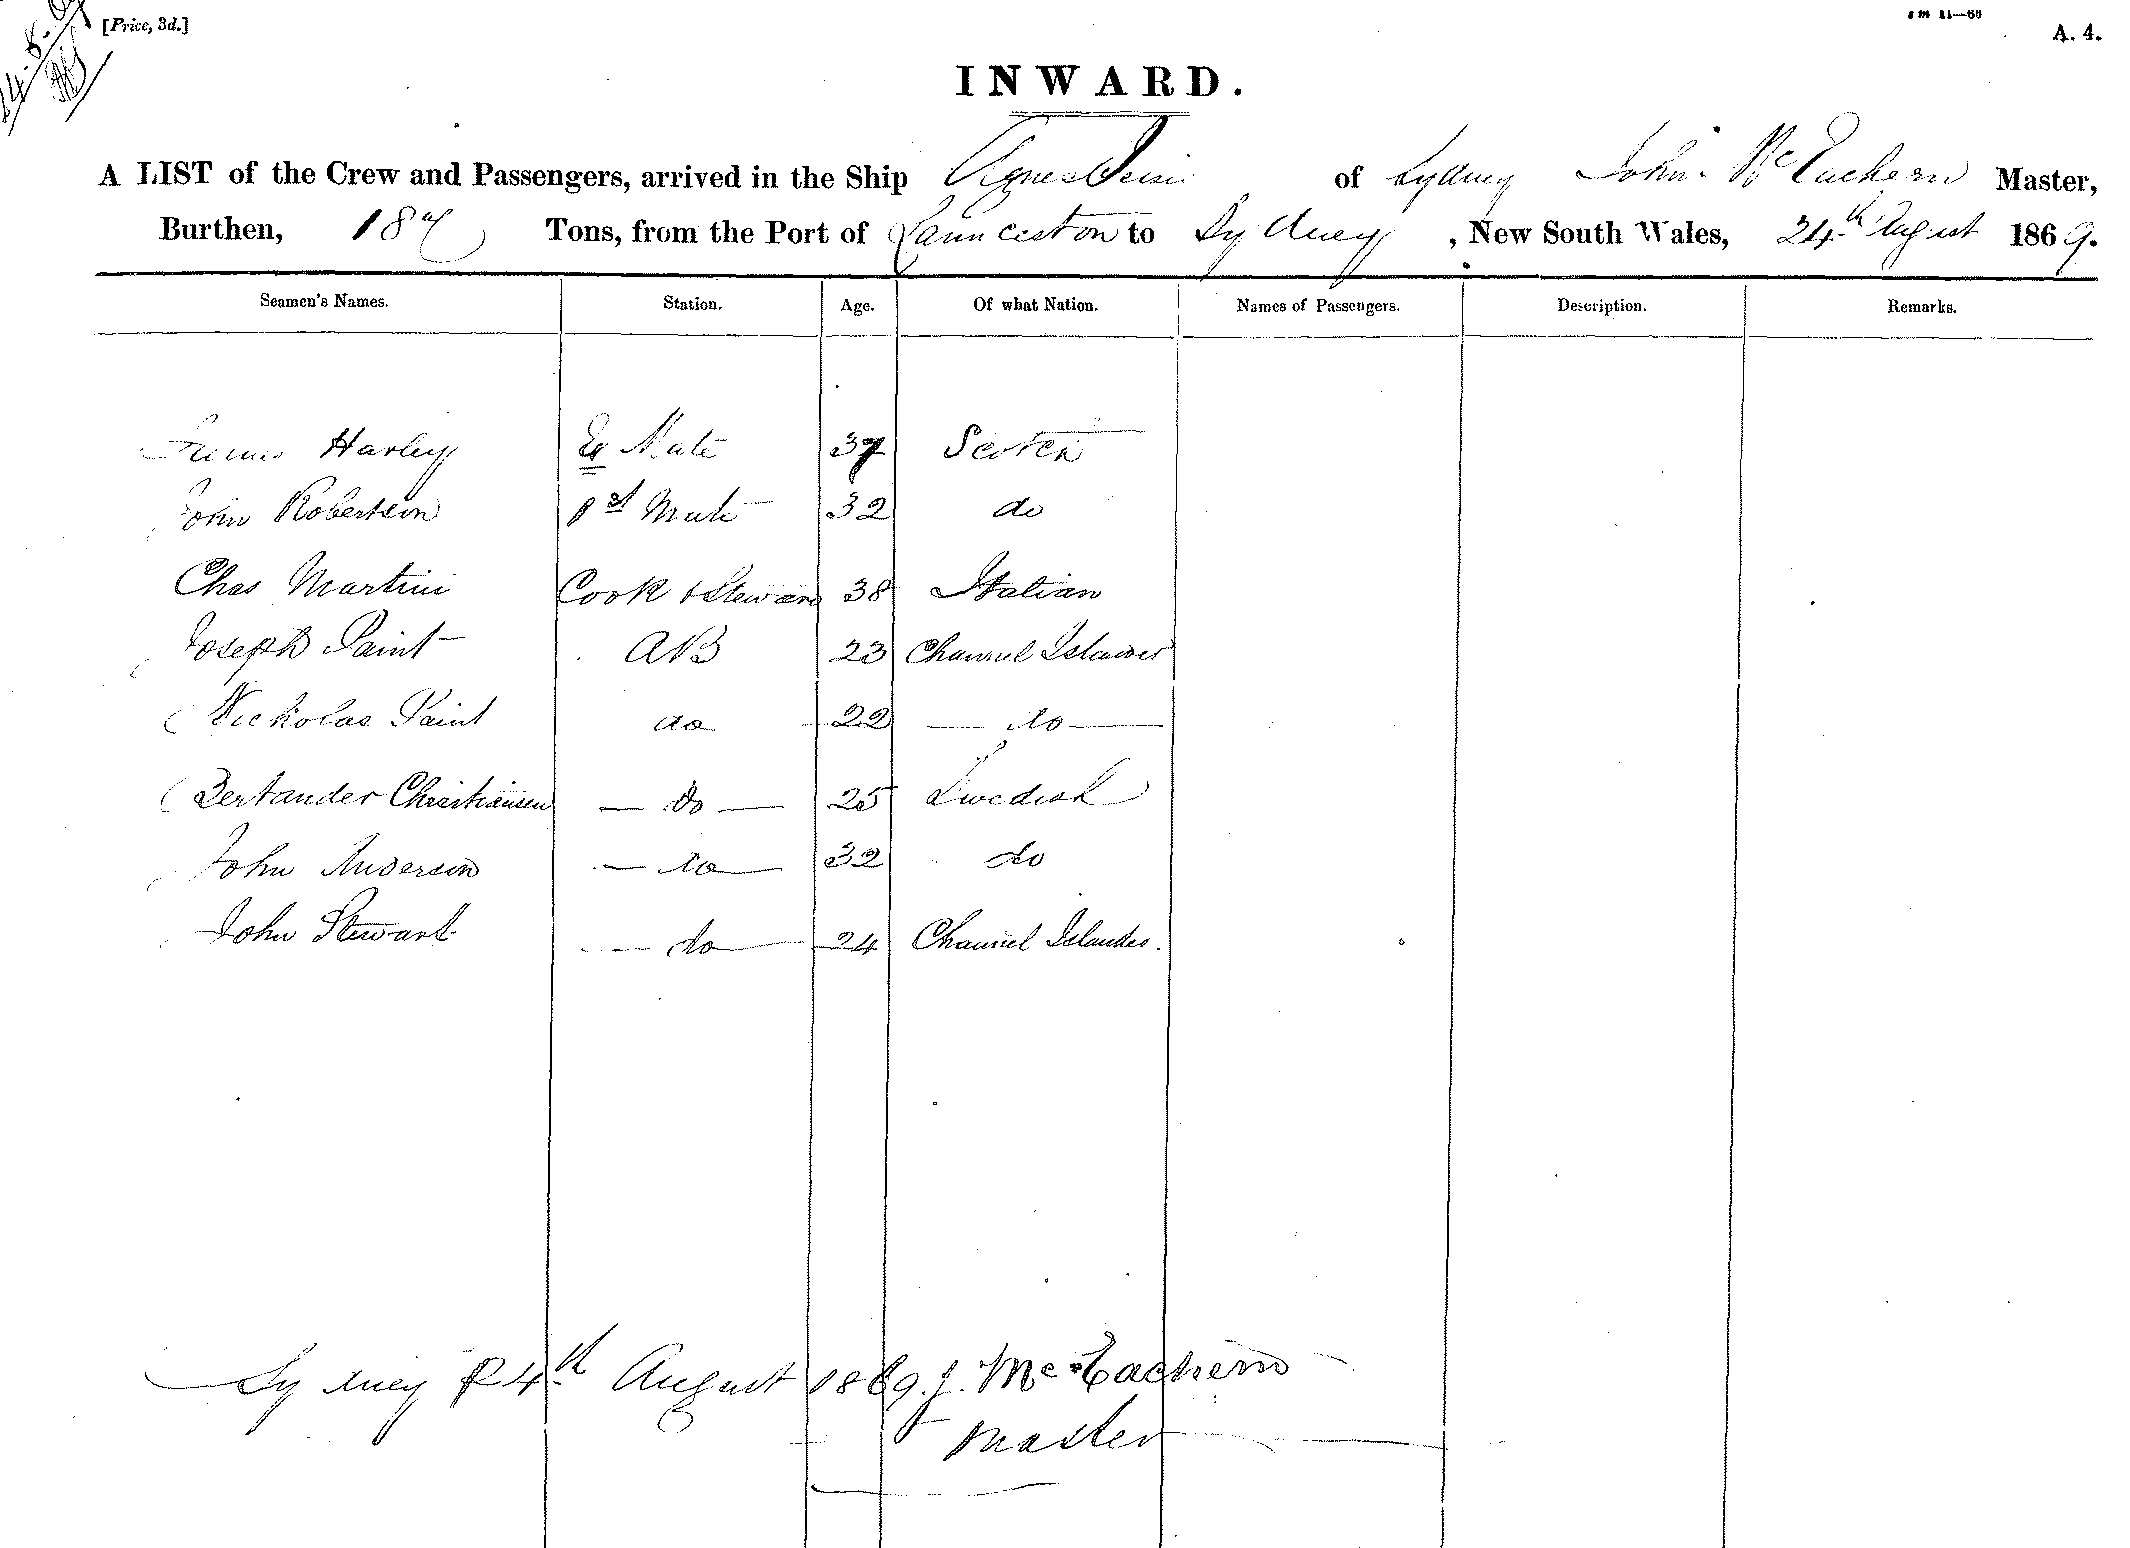 [Price, 3d.]
A. 4.
INWARD.
A LIST of the Crew and Passengers, arrived in the Ship Agnes of Sydney John Mc Eachern Master,
Burthen, 187 Tons, from the Port of Launceston to Sydney, New South Wales, 24th August 1869.
Seamen's Names. Station. Age. Of what Nation. Names of Passengers. Description. Remarks.
Harley Mate 37 Scotch
John Robertson 1st Mate 32 do
Chas Martini Cook & Steward 38 Italian
Joseph Paint AB 23 Channel Islander
Nickolas Paint do 22 — do —
Christiansen — do — 25 Swedish
John Anderson — do — 32 do
John Stewart — do — 24 Channel Islander.
Sydney 24th August 1869. J. McEachern
Master